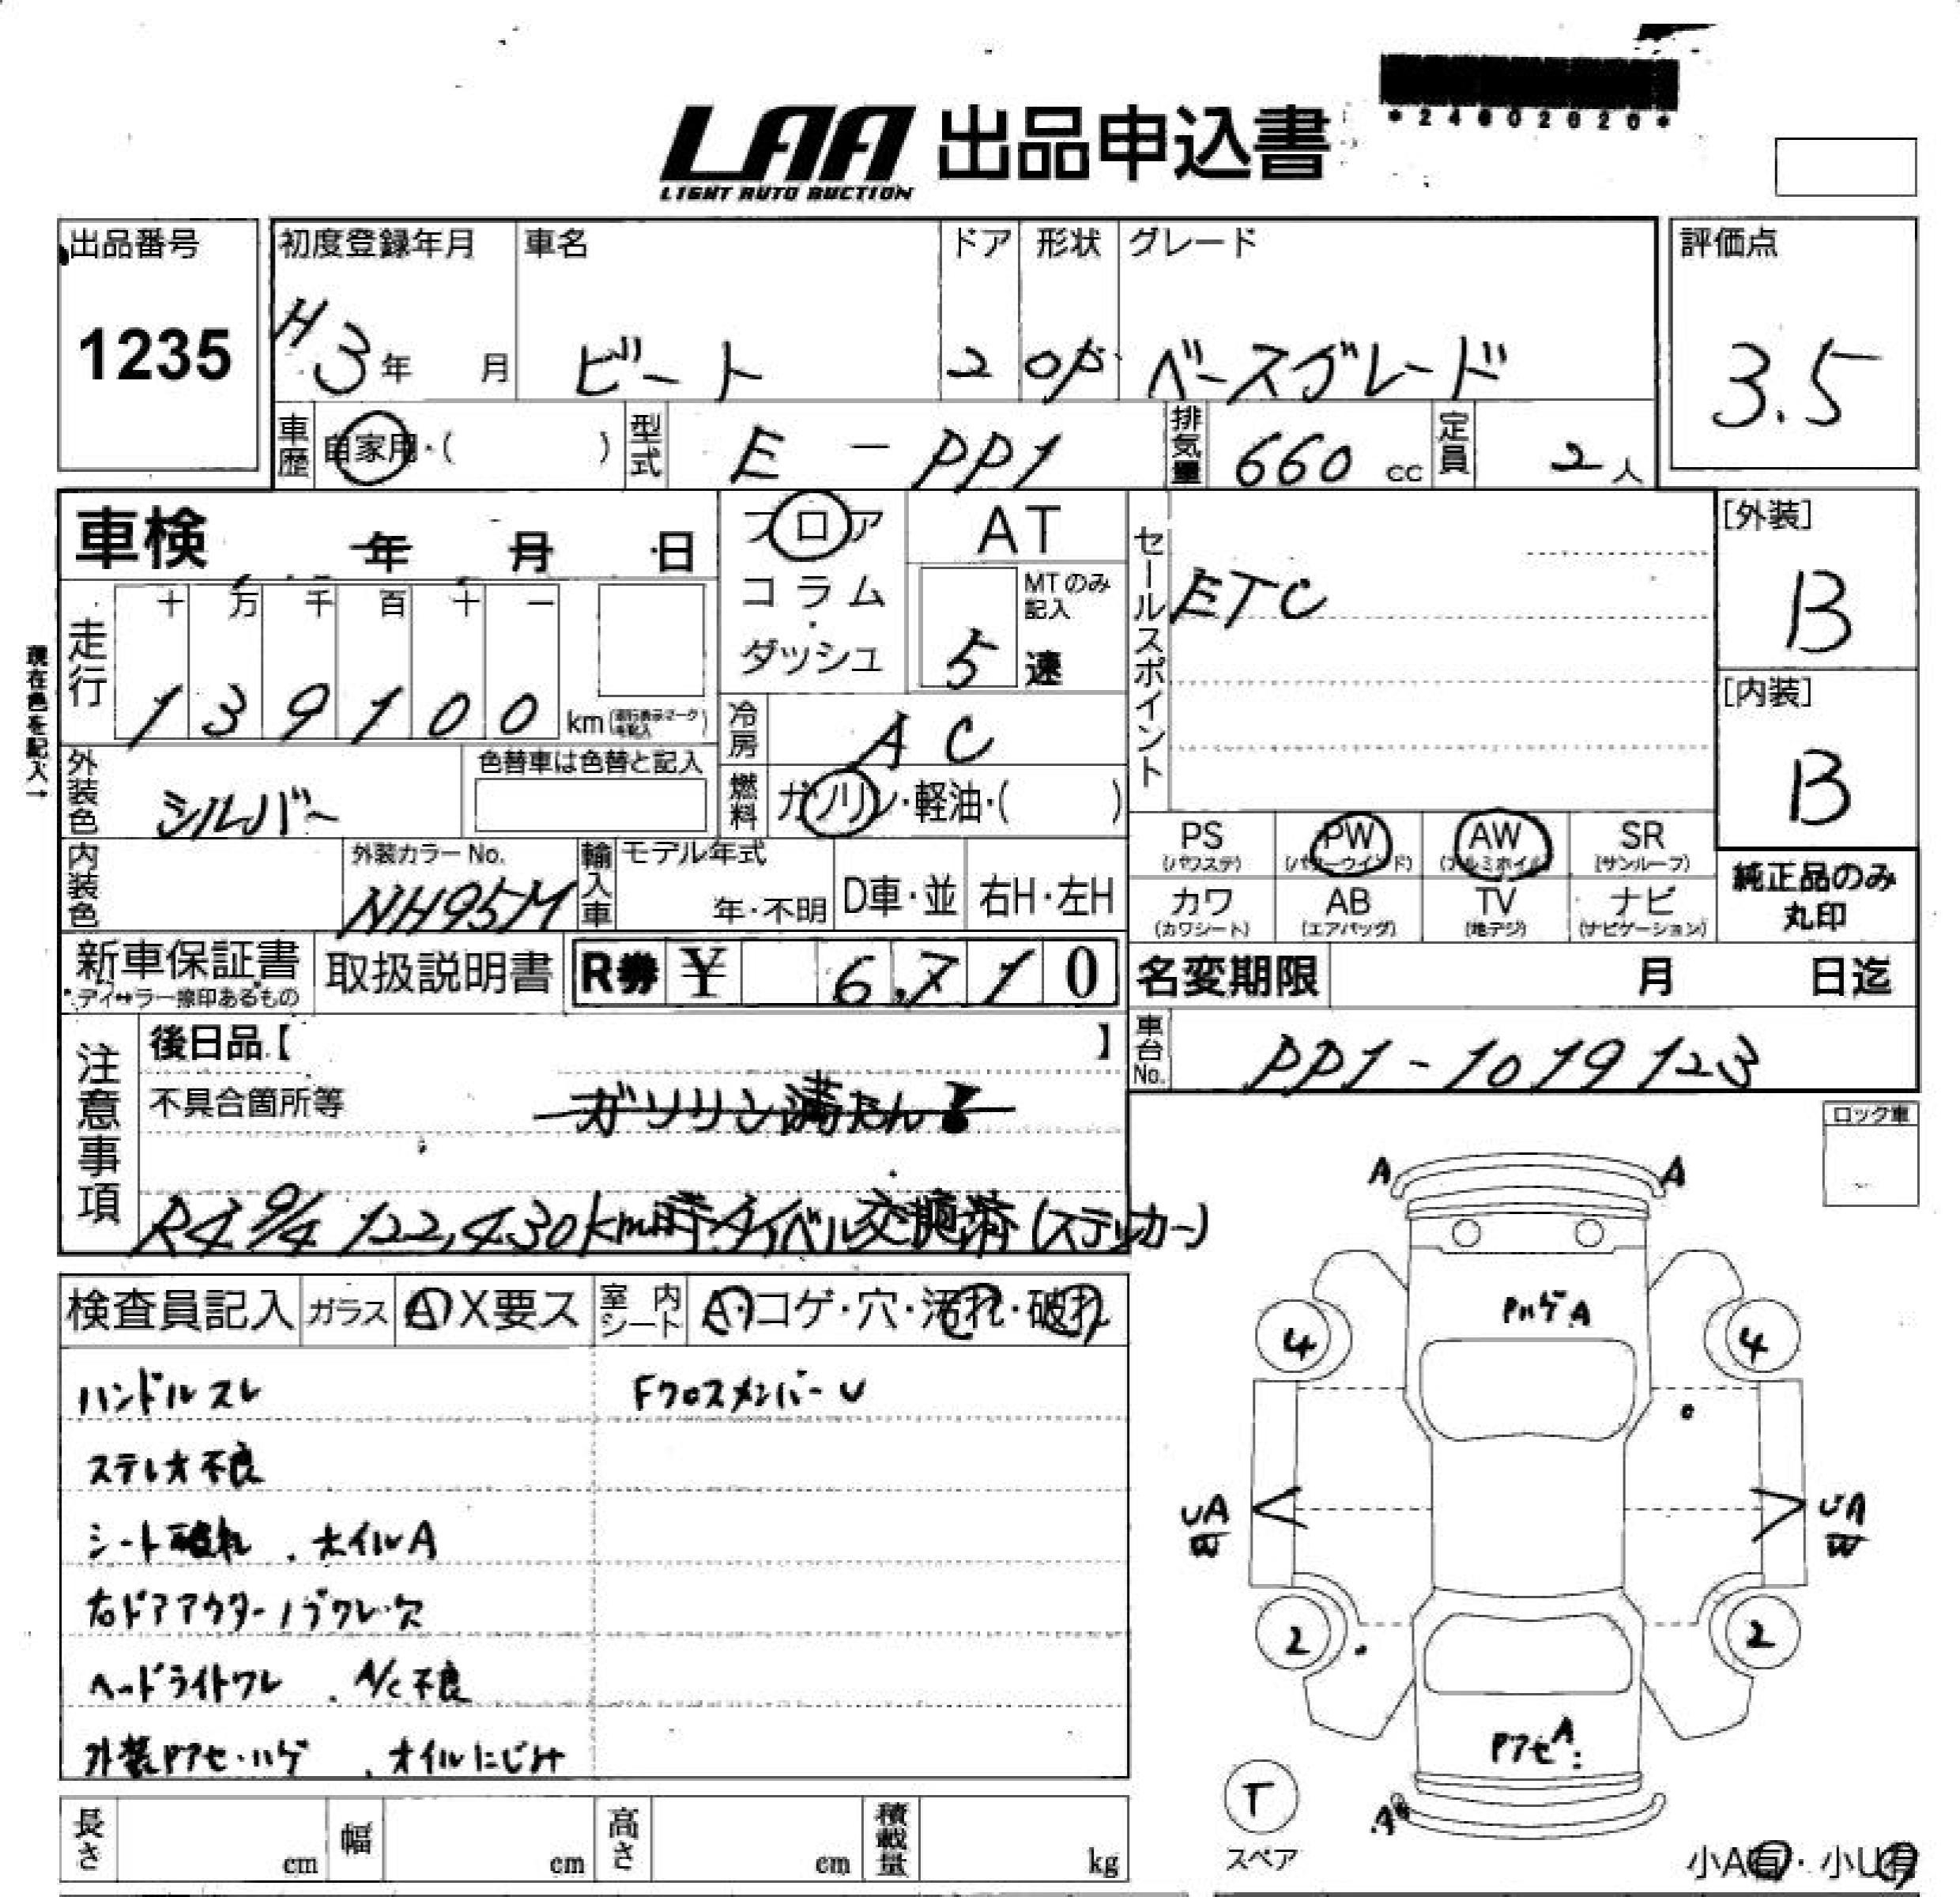 *24802020*
LAA 出品申込書
LIGHT AUTO AUCTION
出品番号
1235
初度登録年月 車名 ドア 形状 グレード
H3年 月 ビート 2 OP ベースグレード
評価点
3.5
車歴 自家用・( ) 型式 E - PP1 排気量 660 cc 定員 2人
車検 年 月 日
フロア
コラム・
ダッシュ
AT
MTのみ記入
5 速
走行
十 万 千 百 十 一
1 3 9 1 0 0 km
現在色を記入→
冷房 AC
燃料 ガソリン・軽油・( )
外装色 シルバー
色替車は色替と記入
内装色
外装カラーNo.
NH95M
輸入車 モデル年式
年・不明 D車・並 右H・左H
新車保証書
ディーラー捺印あるもの
取扱説明書
R券 ¥ 6,710
セールスポイント
ETC
[外装]
B
[内装]
B
PS (パワステ) PW (パワーウインド) AW (アルミホイル) SR (サンルーフ)
カワ (カワシート) AB (エアバッグ) TV (地デジ) ナビ (ナビゲーション)
純正品のみ
丸印
名変期限 月 日迄
車台No. PP1-1019123
注意事項
後日品【 】
不具合箇所等
ガソリン満たん!
R4 9/4 122,430km時タイベル交換済(ステッカー)
ロック車
検査員記入 ガラス A・X要ス 室内シート A・コゲ・穴・汚れ・破れ
ハンドルスレ
Fクロスメンバー U
ステレオ不良
シート破れ . ホイルA
右ドアアウターノブワレ・欠
ヘッドライトワレ . A/C不良
外装Pアセ・ハゲ . オイルにじみ
A A
PハゲA
4 4
UA
W
UA
W
2 2
PアセA
T
スペア
A
小A有・小U有
長さ cm 幅 cm 高さ cm 積載量 kg